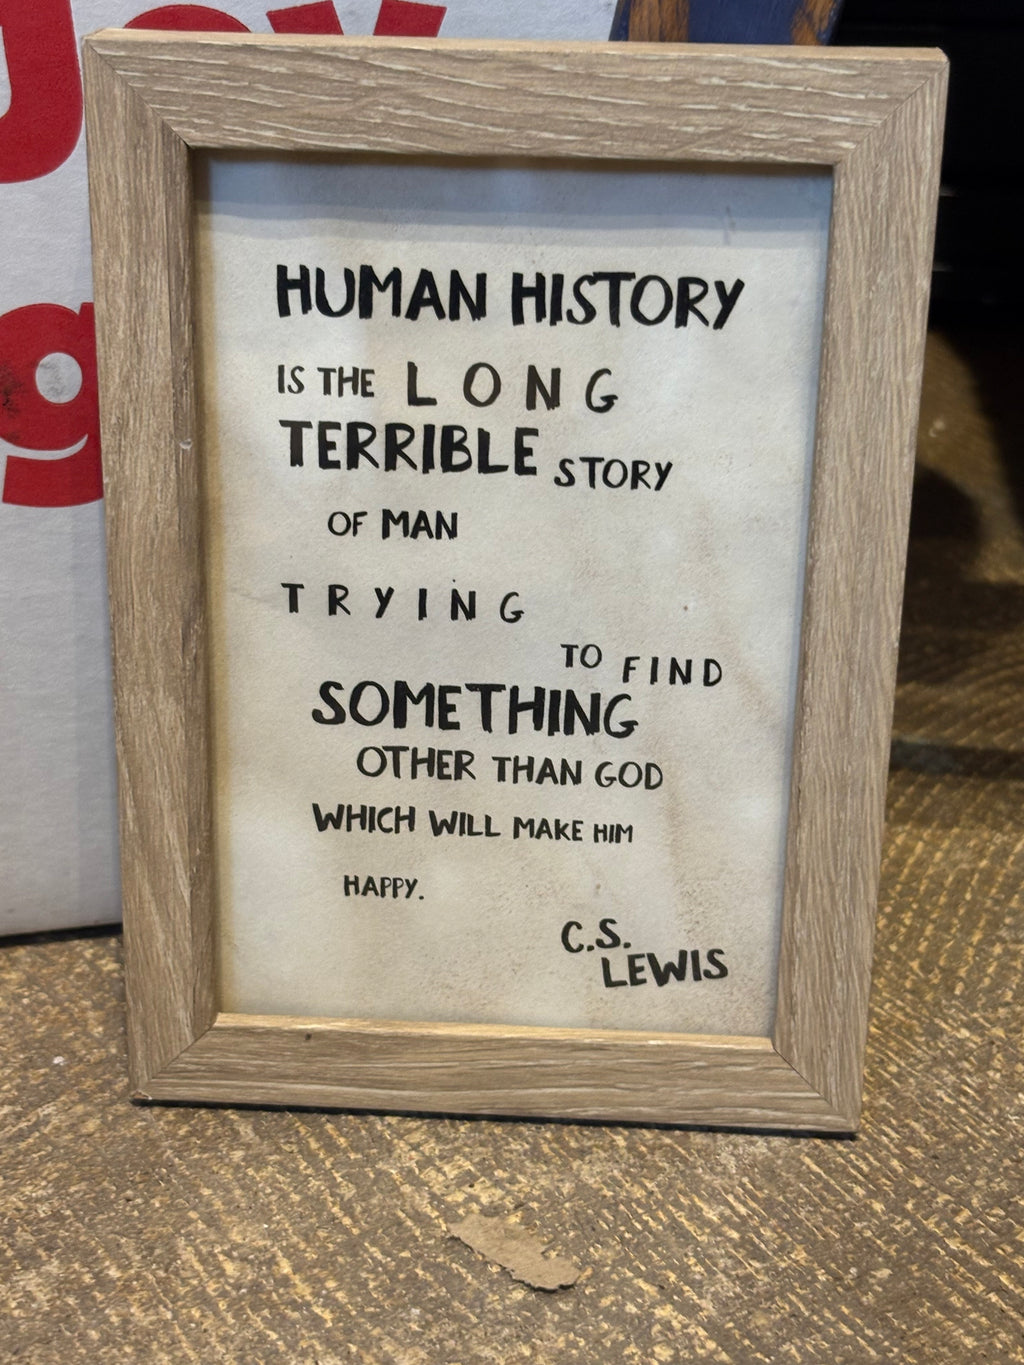 HUMAN HISTORY
IS THE LONG
TERRIBLE STORY
OF MAN
TRYING
TO FIND
SOMETHING
OTHER THAN GOD
WHICH WILL MAKE HIM
HAPPY.
C.S.
LEWIS